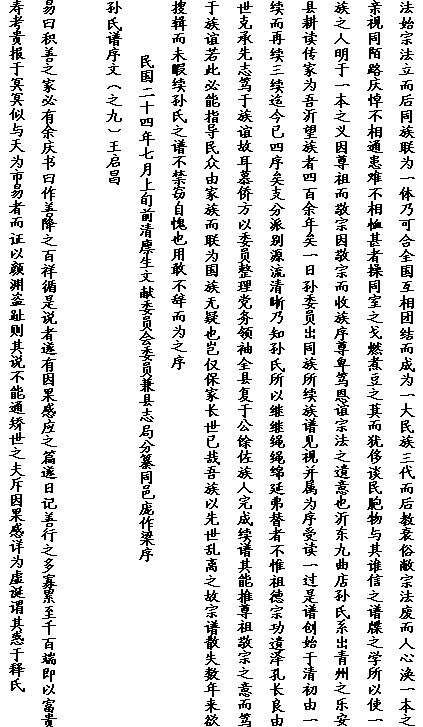 法始宗法立而后同族联为一体乃可合全国互相团结而成为一大民族三代而后教衰俗敝宗法废而人心涣一本之
亲视同陌路庆悼不相通患难不相恤甚者操同室之戈燃煮豆之萁而犹侈谈民胞物与其谁信之谱牒之学所以使一
族之人明于一本之义因尊祖而敬宗因敬宗而收族序尊卑笃恩谊宗法之遗意也沂东九曲店孙氏系出青州之乐安
县耕读传家为吾沂望族者四百余年矣一日孙委员出同族所续族谱见视并属为序受读一过是谱创始于清初由一
续而再续三续迄今已四序矣支分派别源流清晰乃知孙氏所以继继绳绳绵延弗替者不惟祖德宗功遗泽孔长良由
世克承先志笃于族谊故耳慕侨方以委员整理党务领袖全县复于公馀佐族人完成续谱其能推尊祖敬宗之意而笃
于族谊若此必能指导民众由家族而联为国族无疑也岂仅保家长世已哉吾族以先世乱离之故宗谱散失数年来欲
搜辑而未暇续孙氏之谱不禁窃自愧也用敢不辞而为之序
民国二十四年七月上旬前清廪生文献委员会委员兼县志局分纂同邑庞作梁序
孙氏谱序文（之九）王启昌
易曰积善之家必有余庆书曰作善降之百祥循是说者遂有因果感应之篇遂日记善行之多寡累至千百端即以富贵
寿考责报于冥冥似与天为市易者而证以颜渊盗跖则其说不能通矫世之夫斥因果感详为虚诞谓其惑于释氏